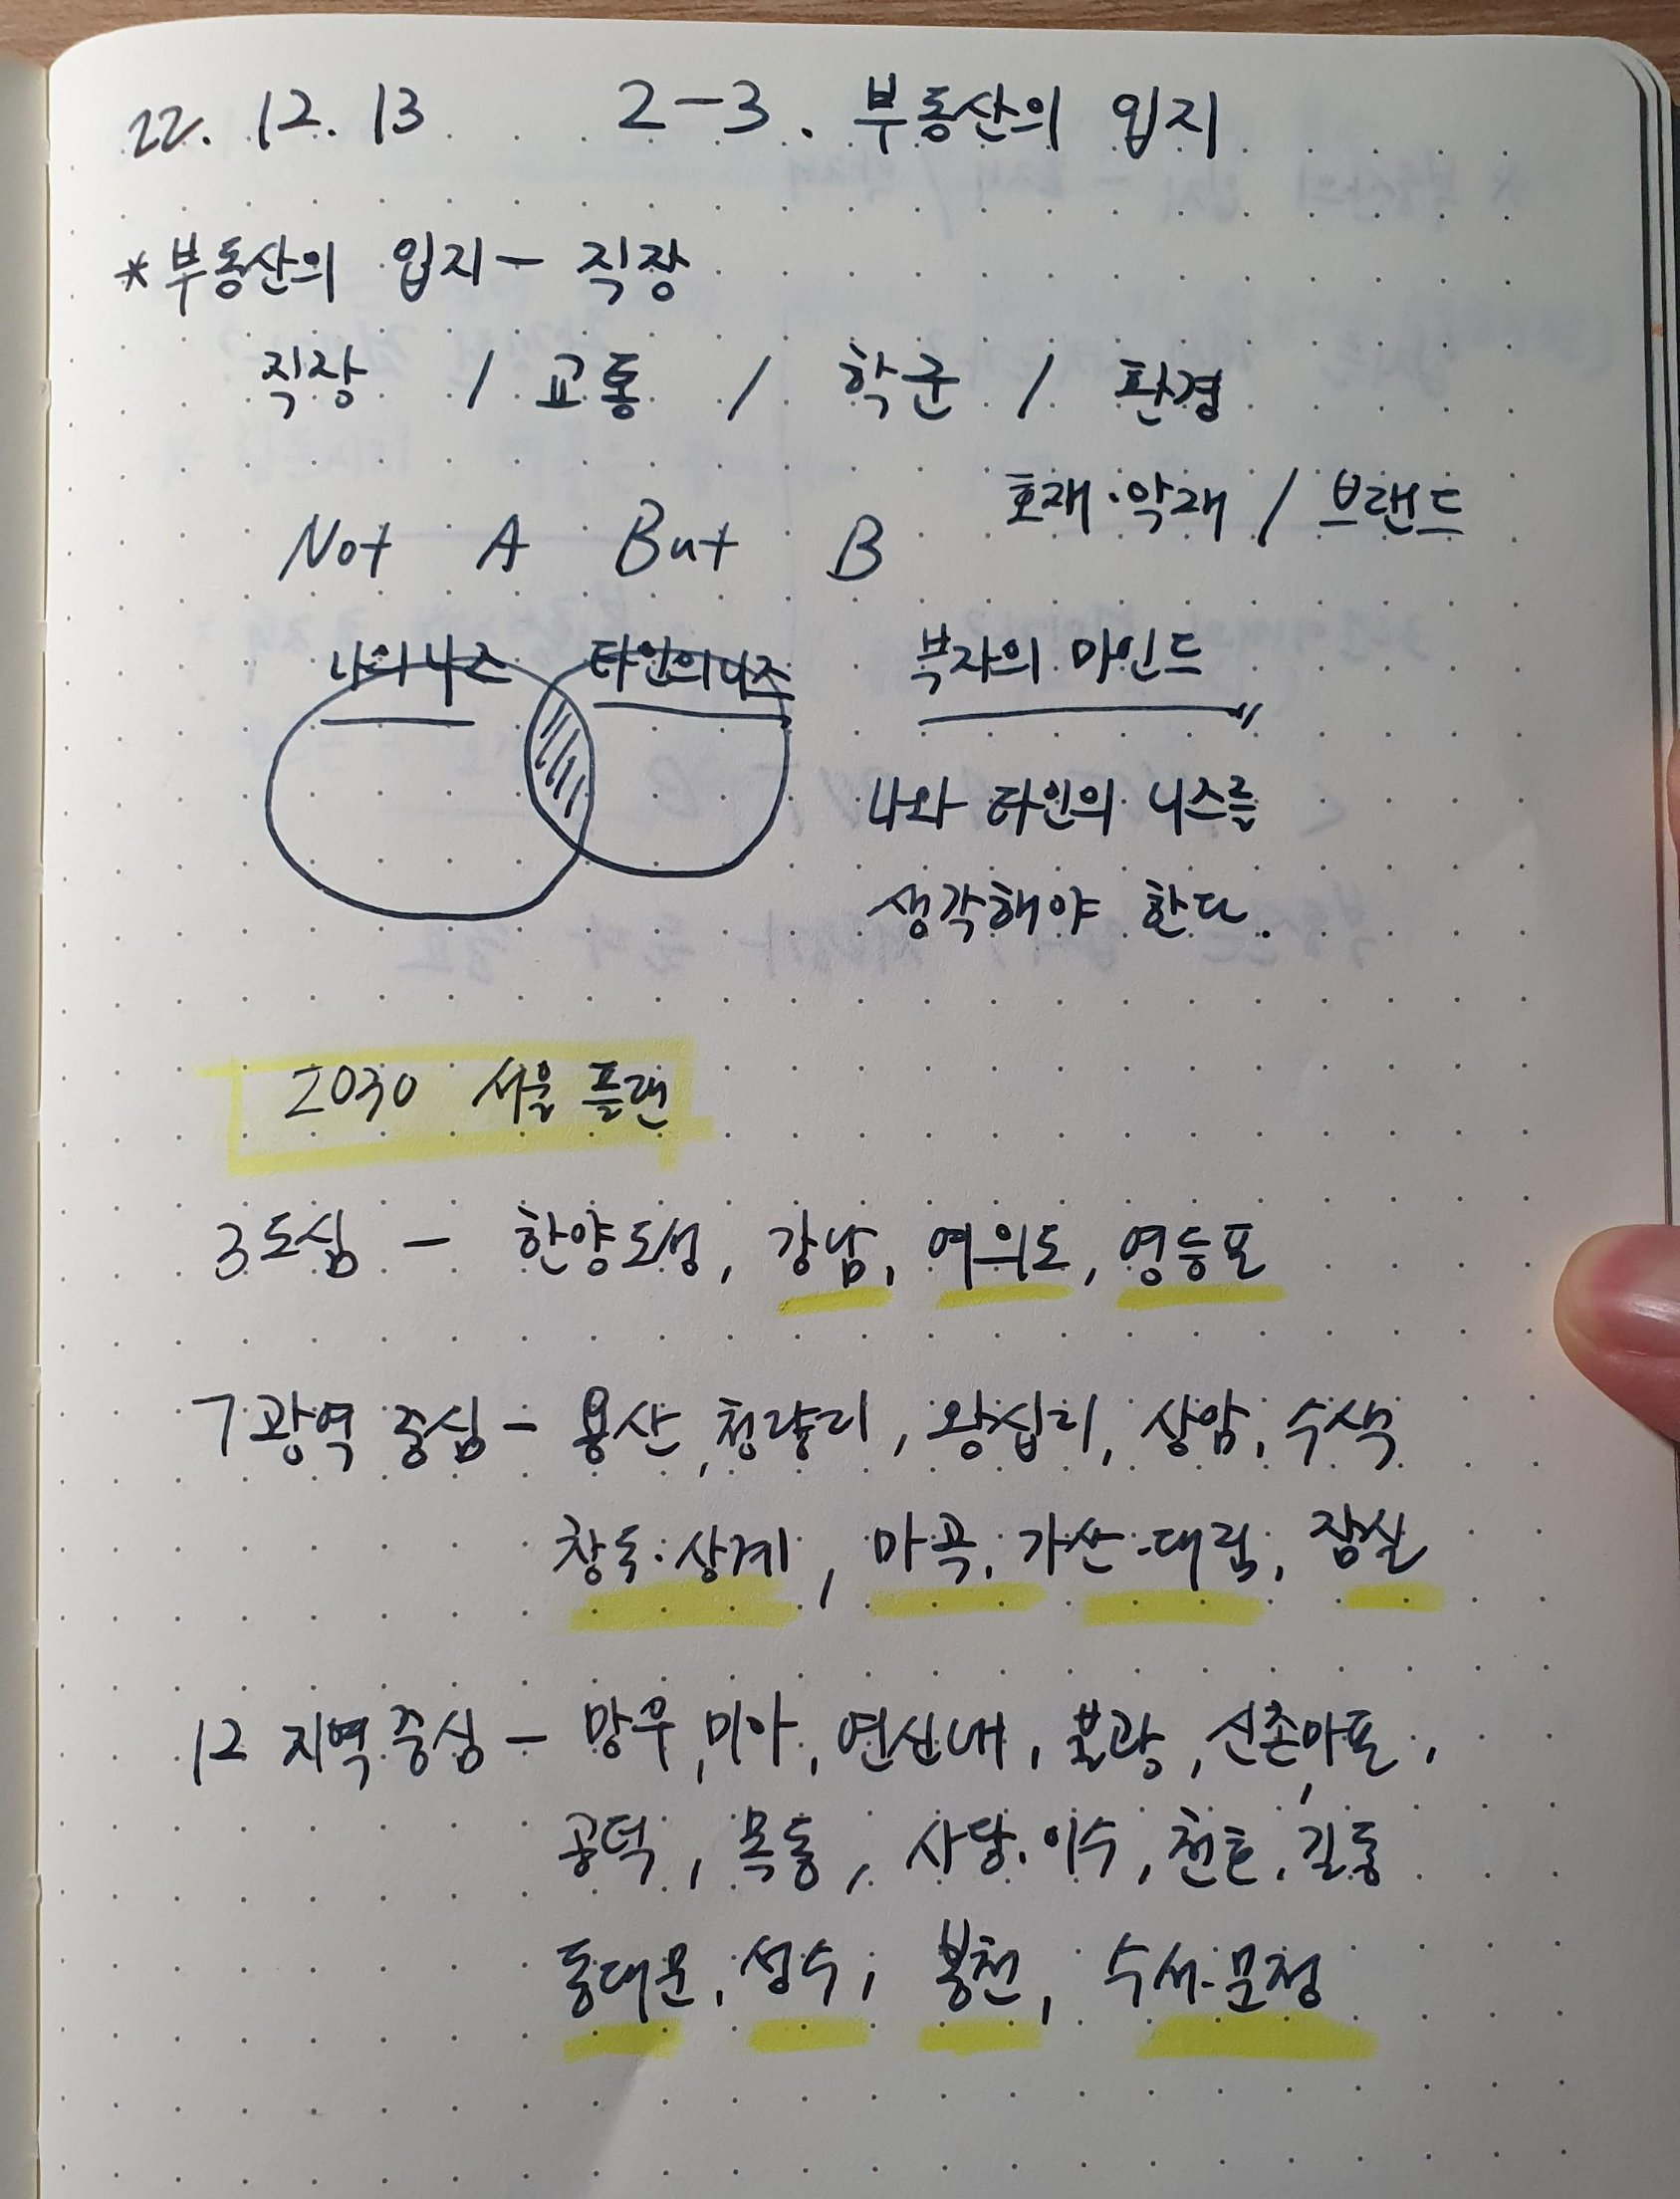 22. 12. 13 2-3. 부동산의 입지
*부동산의 입지 - 직장
직장 / 교통 / 학군 / 환경
호재·악재 / 브랜드
Not A But B
나의 니즈 타인의 니즈 부자의 마인드
나와 타인의 니즈를
생각해야 한다.
2030 서울 플랜
3도심 - 한양도성, 강남, 여의도, 영등포
7광역 중심 - 용산, 청량리, 왕십리, 상암, 수색
창동·상계, 마곡, 가산·대림, 잠실
12 지역 중심 - 망우, 미아, 연신내, 불광, 신촌, 마포,
공덕, 목동, 사당·이수, 천호, 길동
동대문, 성수, 봉천, 수서·문정